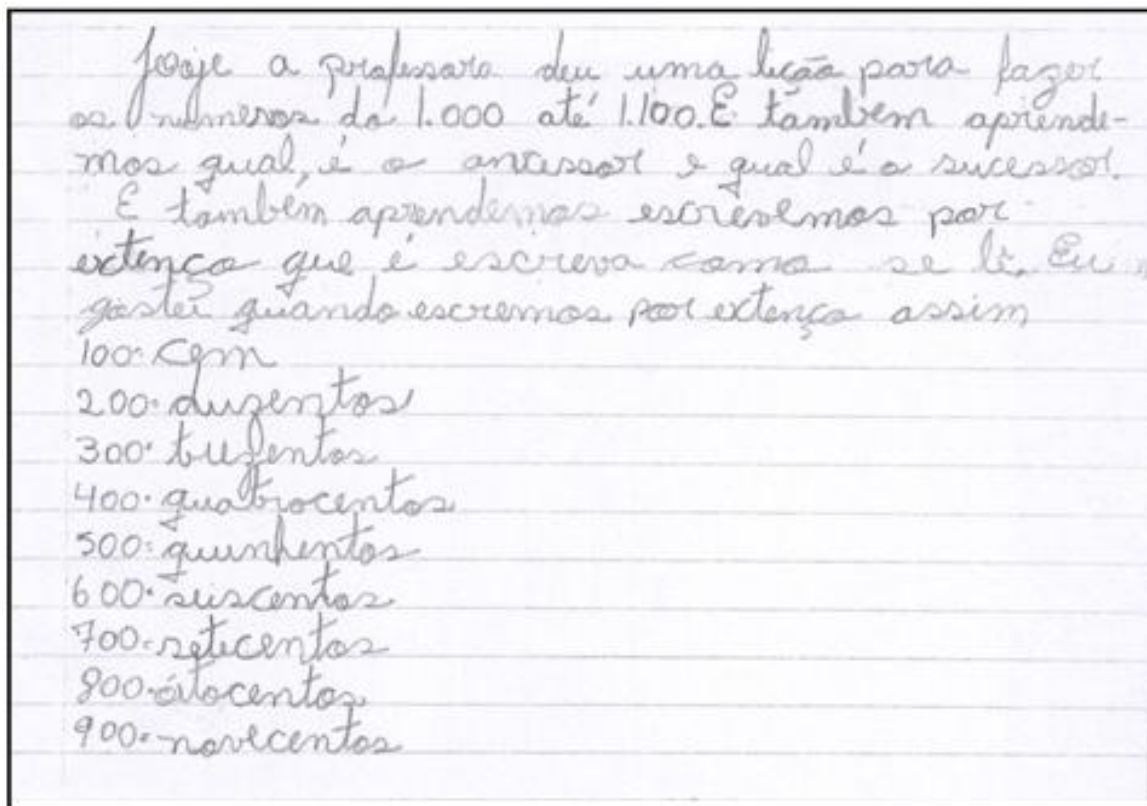 Hoje a professora deu uma lição para fazer
os numeros do 1.000 até 1.100. E também aprende-
mos qual, é o ancessor e qual é o sucessor.
E também aprendemos escrevemos por
extenço que é escreva como se lê. Eu
gostei quando escremos por extenço assim
100. cem
200. duzentos
300. trezentos
400. quatrocentos
500. quinhentos
600. seiscentos
700. setecentos
800. oitocentos
900. novecentos